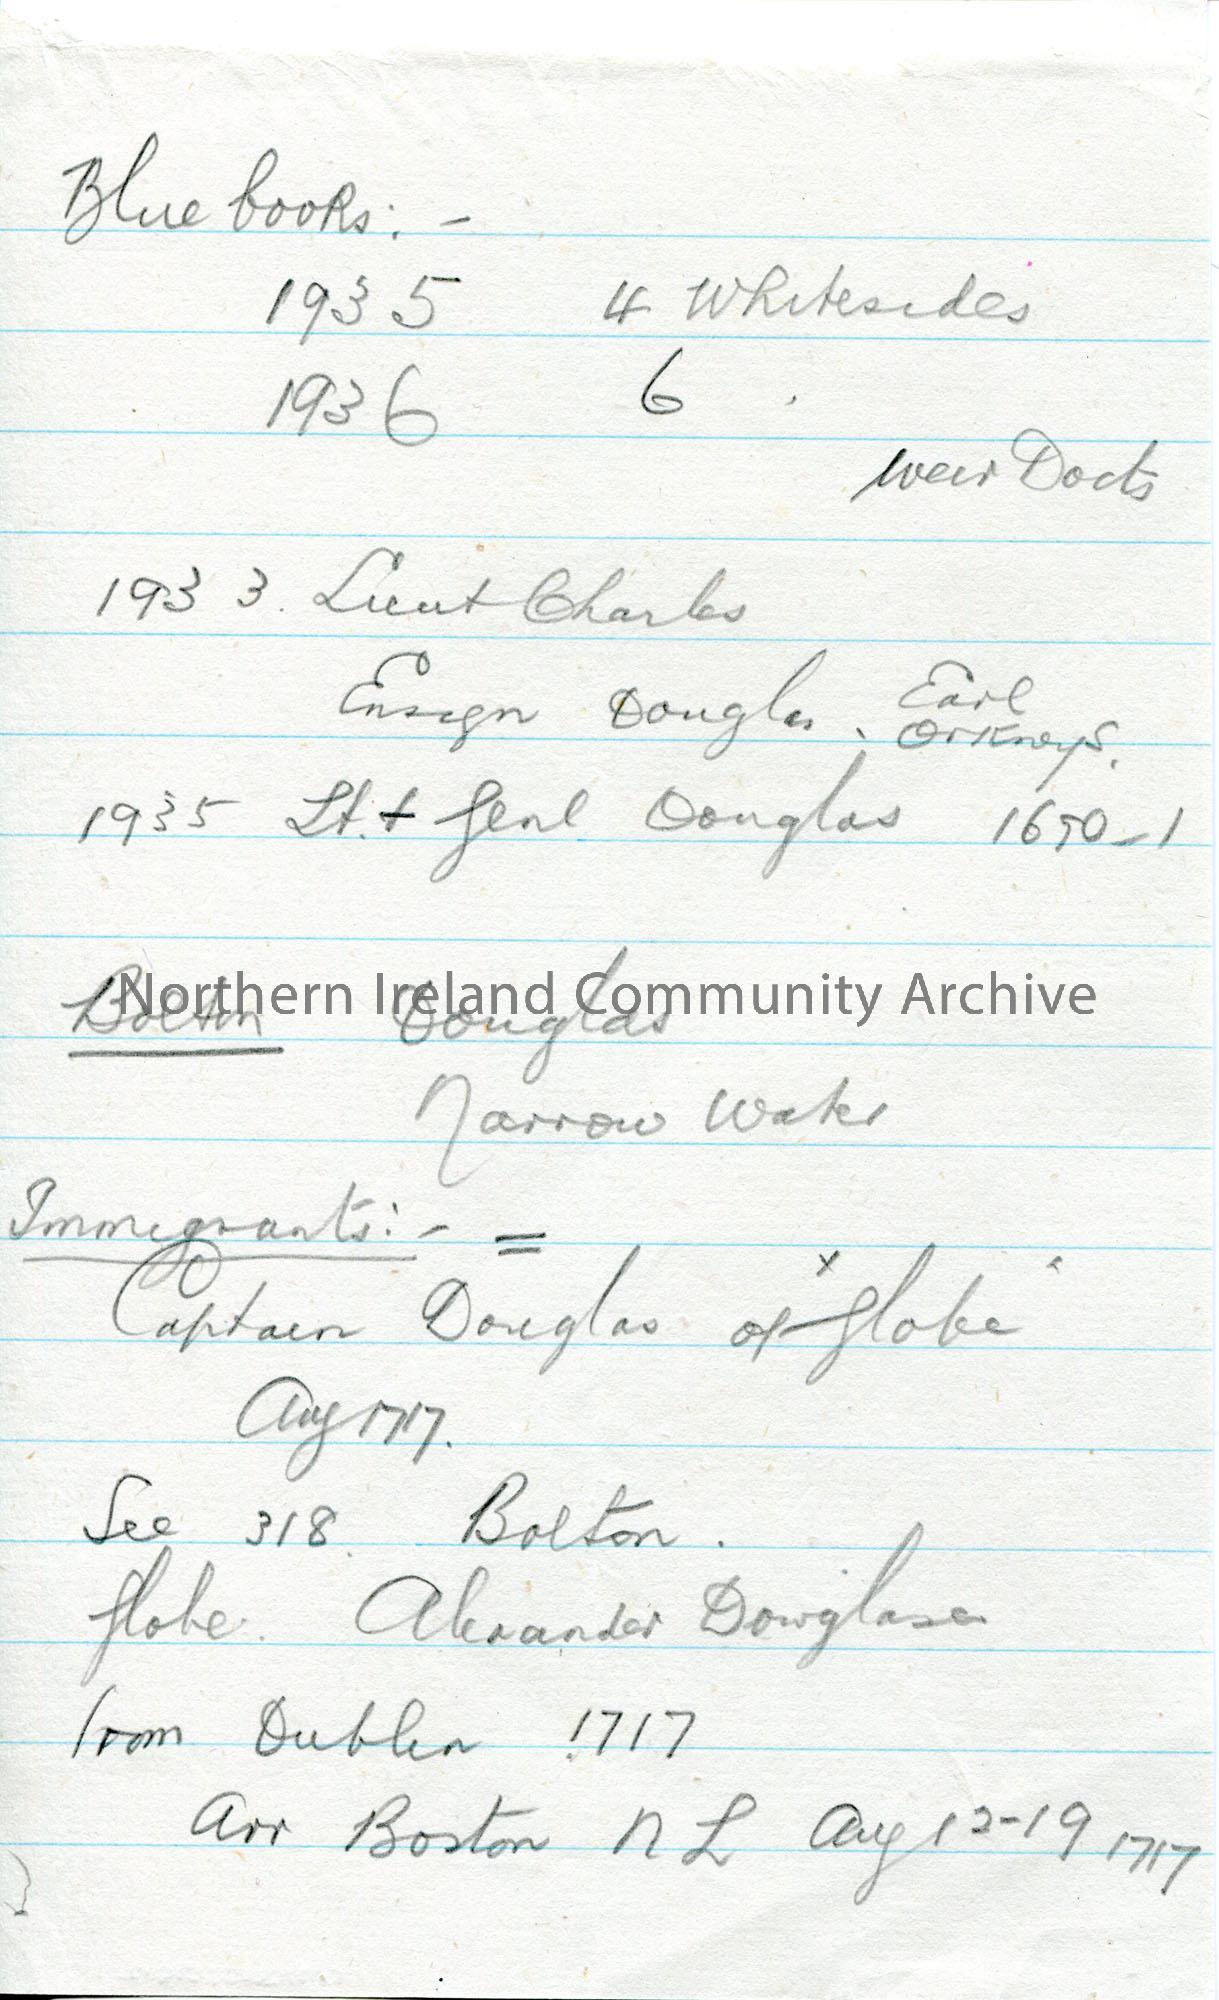 Blue books: -
1935 4 Whitesides
1936 6 .
Weir Docts
1933. Lieut Charles
Ensign Douglas. Earl
Orkneys.
1935 Lt. + Genl Douglas 1690-1
Bolton Douglas
Northern Ireland Community Archive
Narrow Water
Immigrants: - =
Captain Douglas of "Globe"
Aug 1717.
See 318. Bolton.
Globe. Alexander Dowglase
from Dublin 1717
Arr Boston N L Aug 12-19 1717